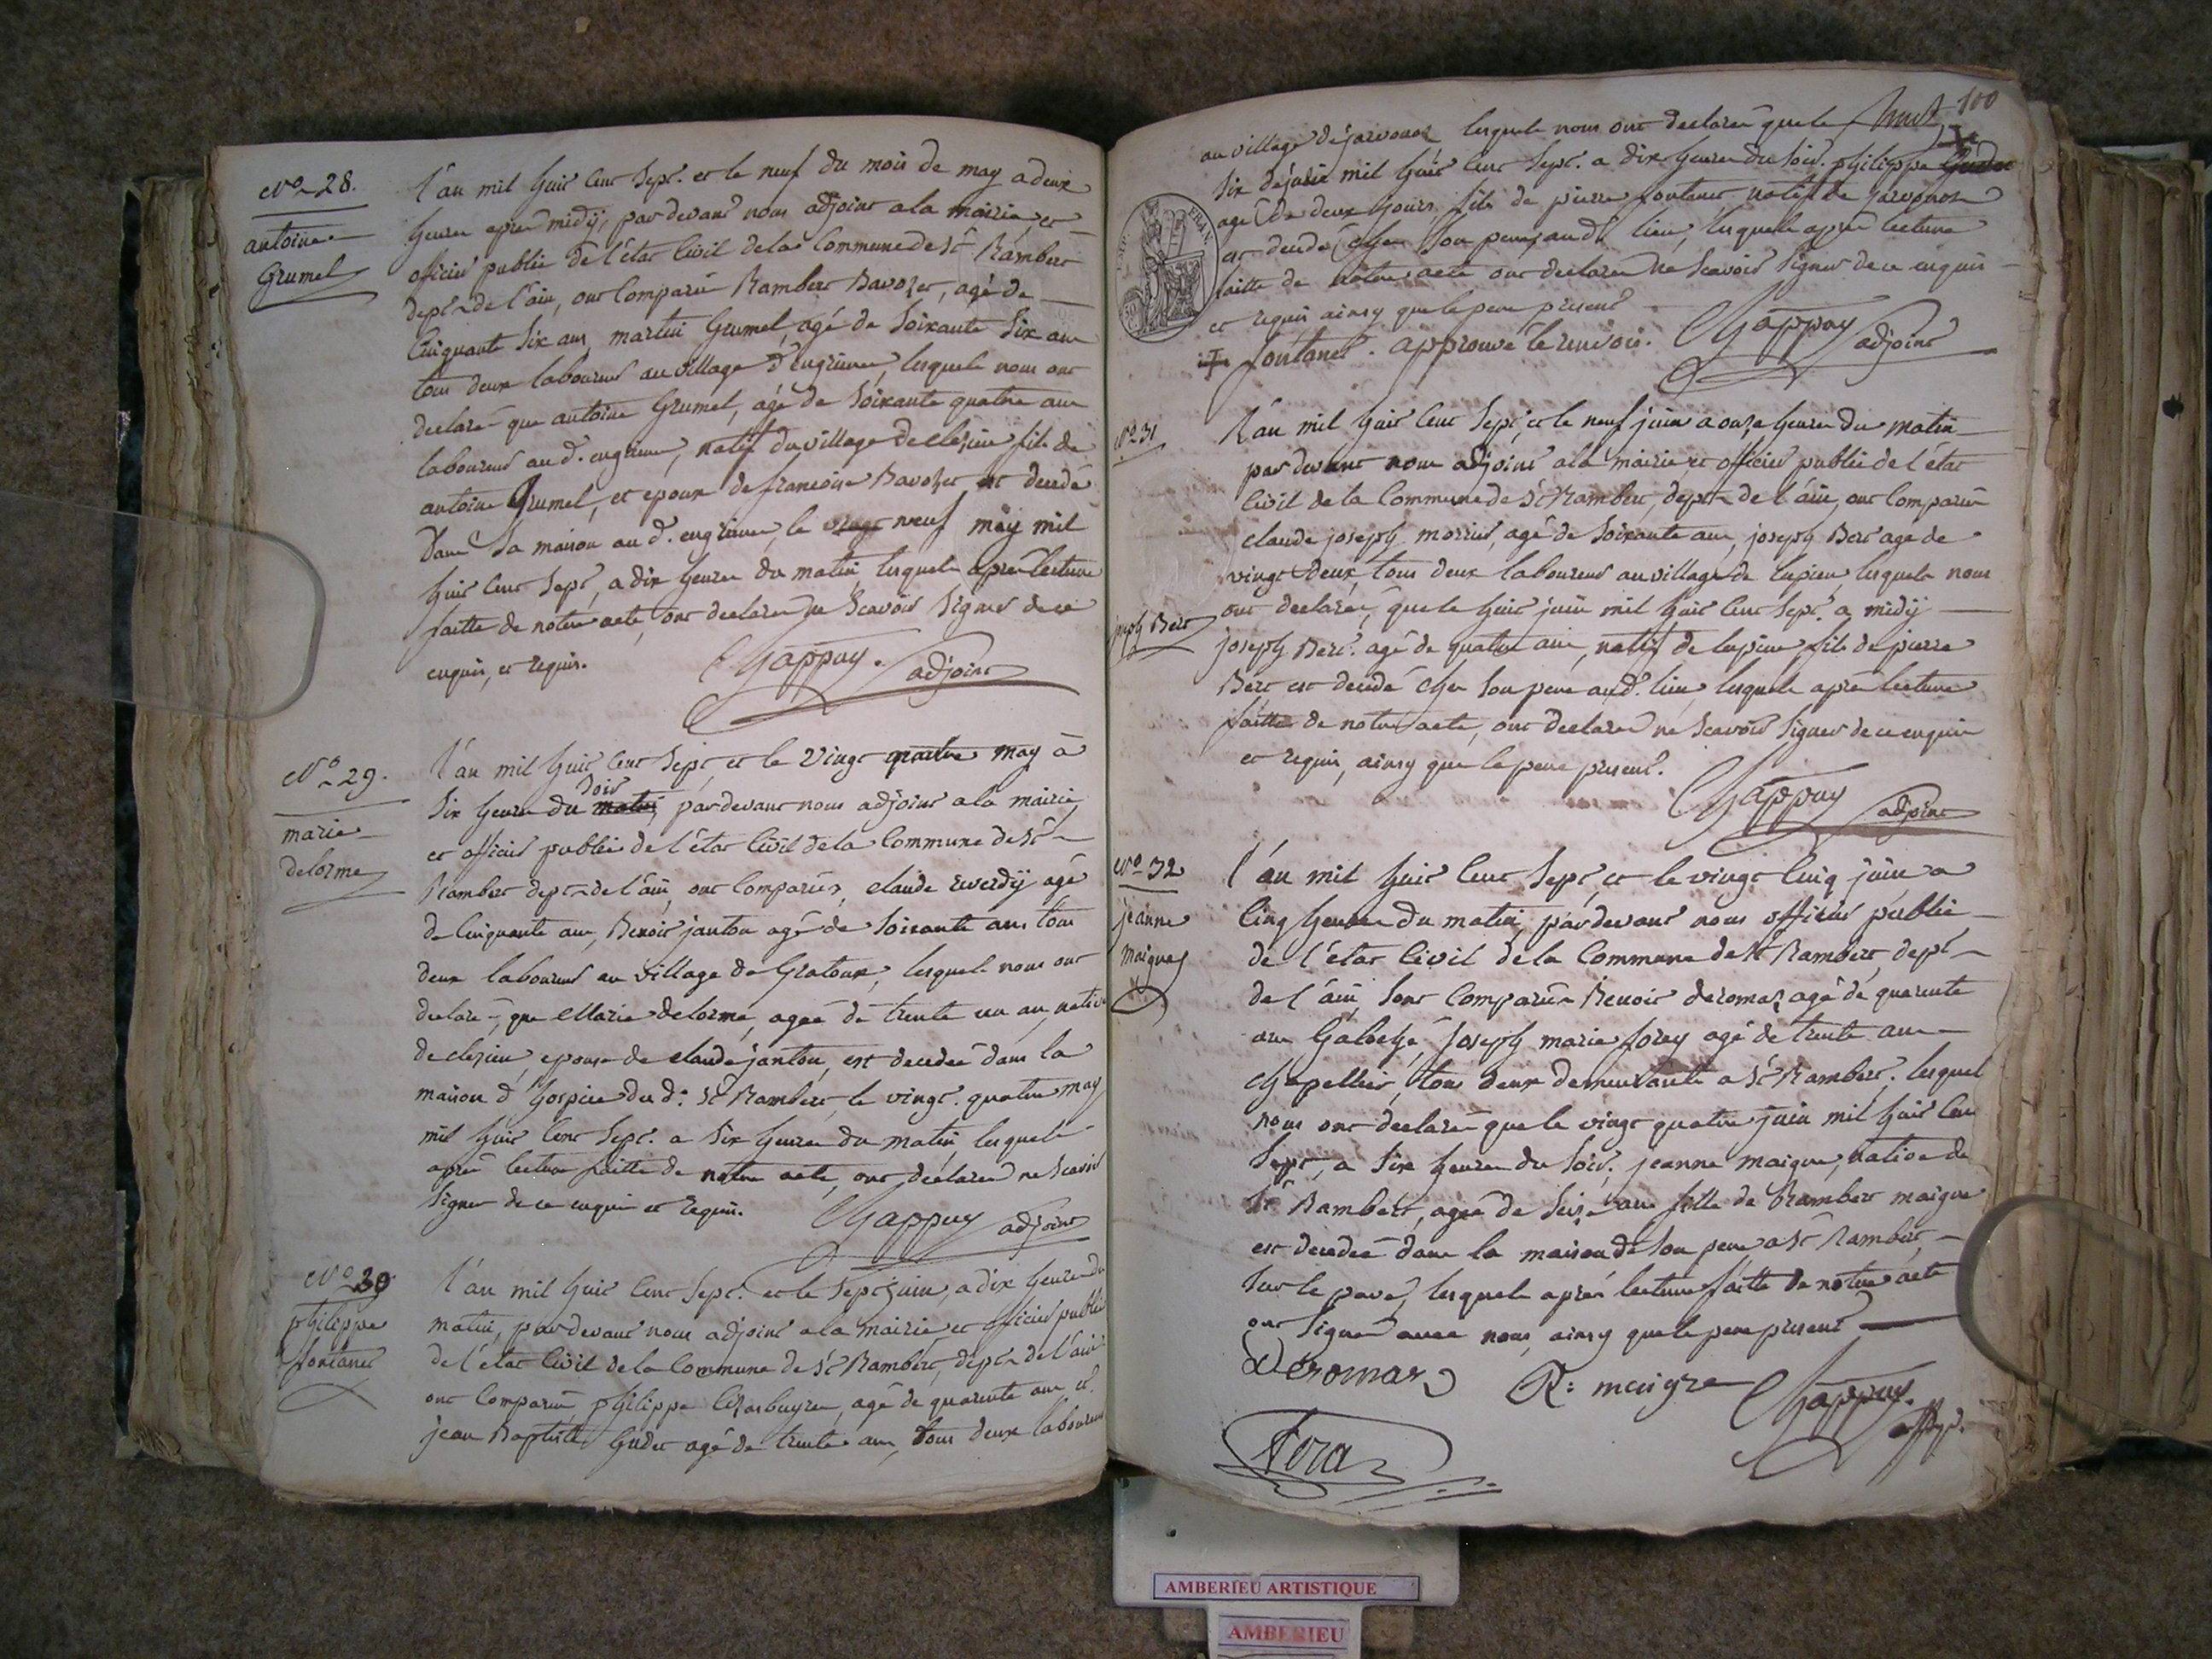 N.o 28.
antoine
Grumel
l'an mil huit cent sept. et le neuf du mois de may a deux
heures apres midÿ, pardevant nous adjoint a la mairie, et
officier public de l'état Civil de la Commune de St. Rambert
dept. de l'ain, ont Comparu Rambert Bavozet, agé de
Cinquante Six ans, martin Grumel, agé de Soixante Six ans
tous deux laboureurs au village d'engrieux, lesquels nous ont
declaré que antoine Grumel, agé de Soixante quatre ans
laboureur au d. engrieux, natif du village de clezieu fils de
antoine Grumel, et epoux de francoise Bavozet est decedé
Dans Sa maison au d. engrieux, le neuf may mil
huit Cent Sept, a dix heures du matin, lesquels apres lecture
faitte de notre acte, ont declarer ne Scavoir Signer de ce
enquis, et requis. Chappuy. adjoint
N.o 29.
marie
delorme
l'an mil huit Cent Sept, et le vingt quatre may à
Soir
Six heures du matin, pardevant nous adjoint a la mairie,
et officier public de l'état Civil de la Commune de St.
Rambert dept. de l'ain, ont Comparus, claude agé
de Cinquante ans, Benoit janton agé de Soixante ans tous
deux laboureurs au village de Gratoux, lesquels nous ont
declaré, que Marie delorme, agée de trente un an, native
de clezieu, epouse de claude janton, est decedée dans la
maison d'hospice du d. St. Rambert, le vingt. quatre may
mil huit Cent Sept. a Six heures du matin, lesquels
apres lecture faitte de notre acte, ont declarer ne Scavoir
Signer de ce enquis et requis. Chappuy adjoint
N.o 30
philippe
fontanet
l'an mil huit Cent Sept. et le Sept juin, a dix heures du
matin, pardevant nous adjoint a la mairie et officier public
de l'état Civil de la Commune de St. Rambert, dept. de l'ain
ont Comparu, philippe agé de quarente ans et
jean Baptiste Guder agé de trente ans, tous deux laboureurs
100
au village de javornoz lesquels nous ont declaré que le
Six de juin mil huit Cent Sept. a dix heures du Soir. philippe Guder
agé de deux jours, fils de pierre fontanet natif de
est decedé chez Son pere, au dt. lieu, lesquels apres lecture
faitte de notre acte ont declarer ne Scavoir Signer de ce enquis
et requis ainsy que le pere présent
fontanet. approuvé le renvois. Chappuy adjoint
No. 31
joseph Bert
L'an mil huit Cent Sept, et le neuf juin a onze heures du matin
pardevant nous adjoint a la mairie et officier public de l'état
Civil de la Commune de St. Rambert, dept. de l'ain, ont Comparu
claude joseph morrier, agé de Soixante ans, joseph Bert agé de
vingt deux, tous deux laboureurs au village de lupieu, lesquels nous
ont declarés, que le huit juin mil huit Cent Sept. a midÿ
joseph Bert. agé de quatre ans, natif de lupieu, fils de pierre
Bert est decedé chez Son pere au d. lieu, lesquels après lecture
faitte de notre acte, ont declarer ne Scavoir Signer de ce enquis
et requis, ainsy que le pere present.
Chappuy adjoint
N.o 32
jeanne
maigre
l'an mil huit Cent Sept, et le vingt Cinq juin a
Cinq heures du matin, pardevant nous officier public
de l'état Civil de la Commune de St. Rambert, dept.
de l'ain, Sont Comparus Benoit deromas, agé de quarente
ans Galoché, joseph marie foray agé de trente ans
chapellier, tous deux demeurants a St. Rambert. lesquel
nous ont declaré que le vingt quatre juin mil huit Cen
Sept, a Six heures du Soir. jeanne maigre, native de
St. Rambert, agée de Seize ans fille de Rambert maigre
est decedée dans la maison de Son pere a St. Rambert,
Sur le pavé, lesquels après lecture faitte de notre acte
ont Signé avec nous, ainsy que le pere présent
Deromas R: maigre Chappuy.
fora
AMBERIEU ARTISTIQUE
AMBERIEU